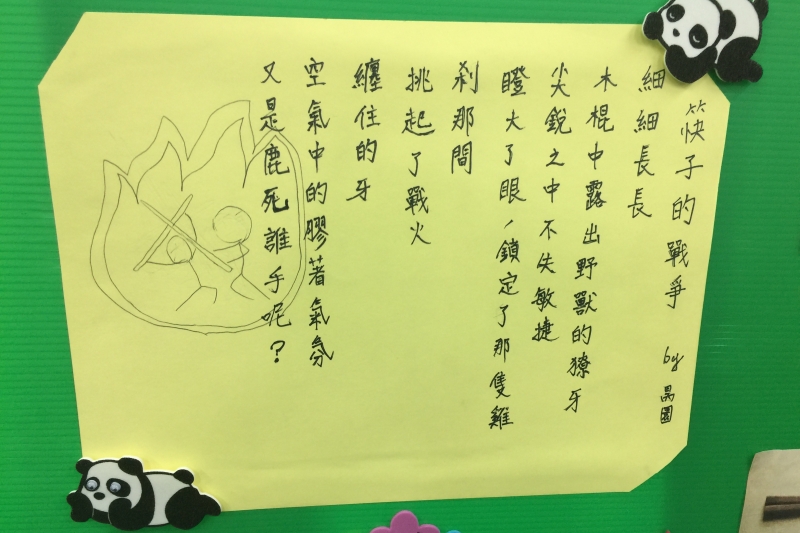 筷子的戰爭 by 晶園
細細長長
木棍中露出野獸的獠牙
尖銳之中不失敏捷
瞪大了眼，鎖定了那隻雞
剎那間
挑起了戰火
纏住的牙
空氣中的膠著氣氛
又是鹿死誰手呢？